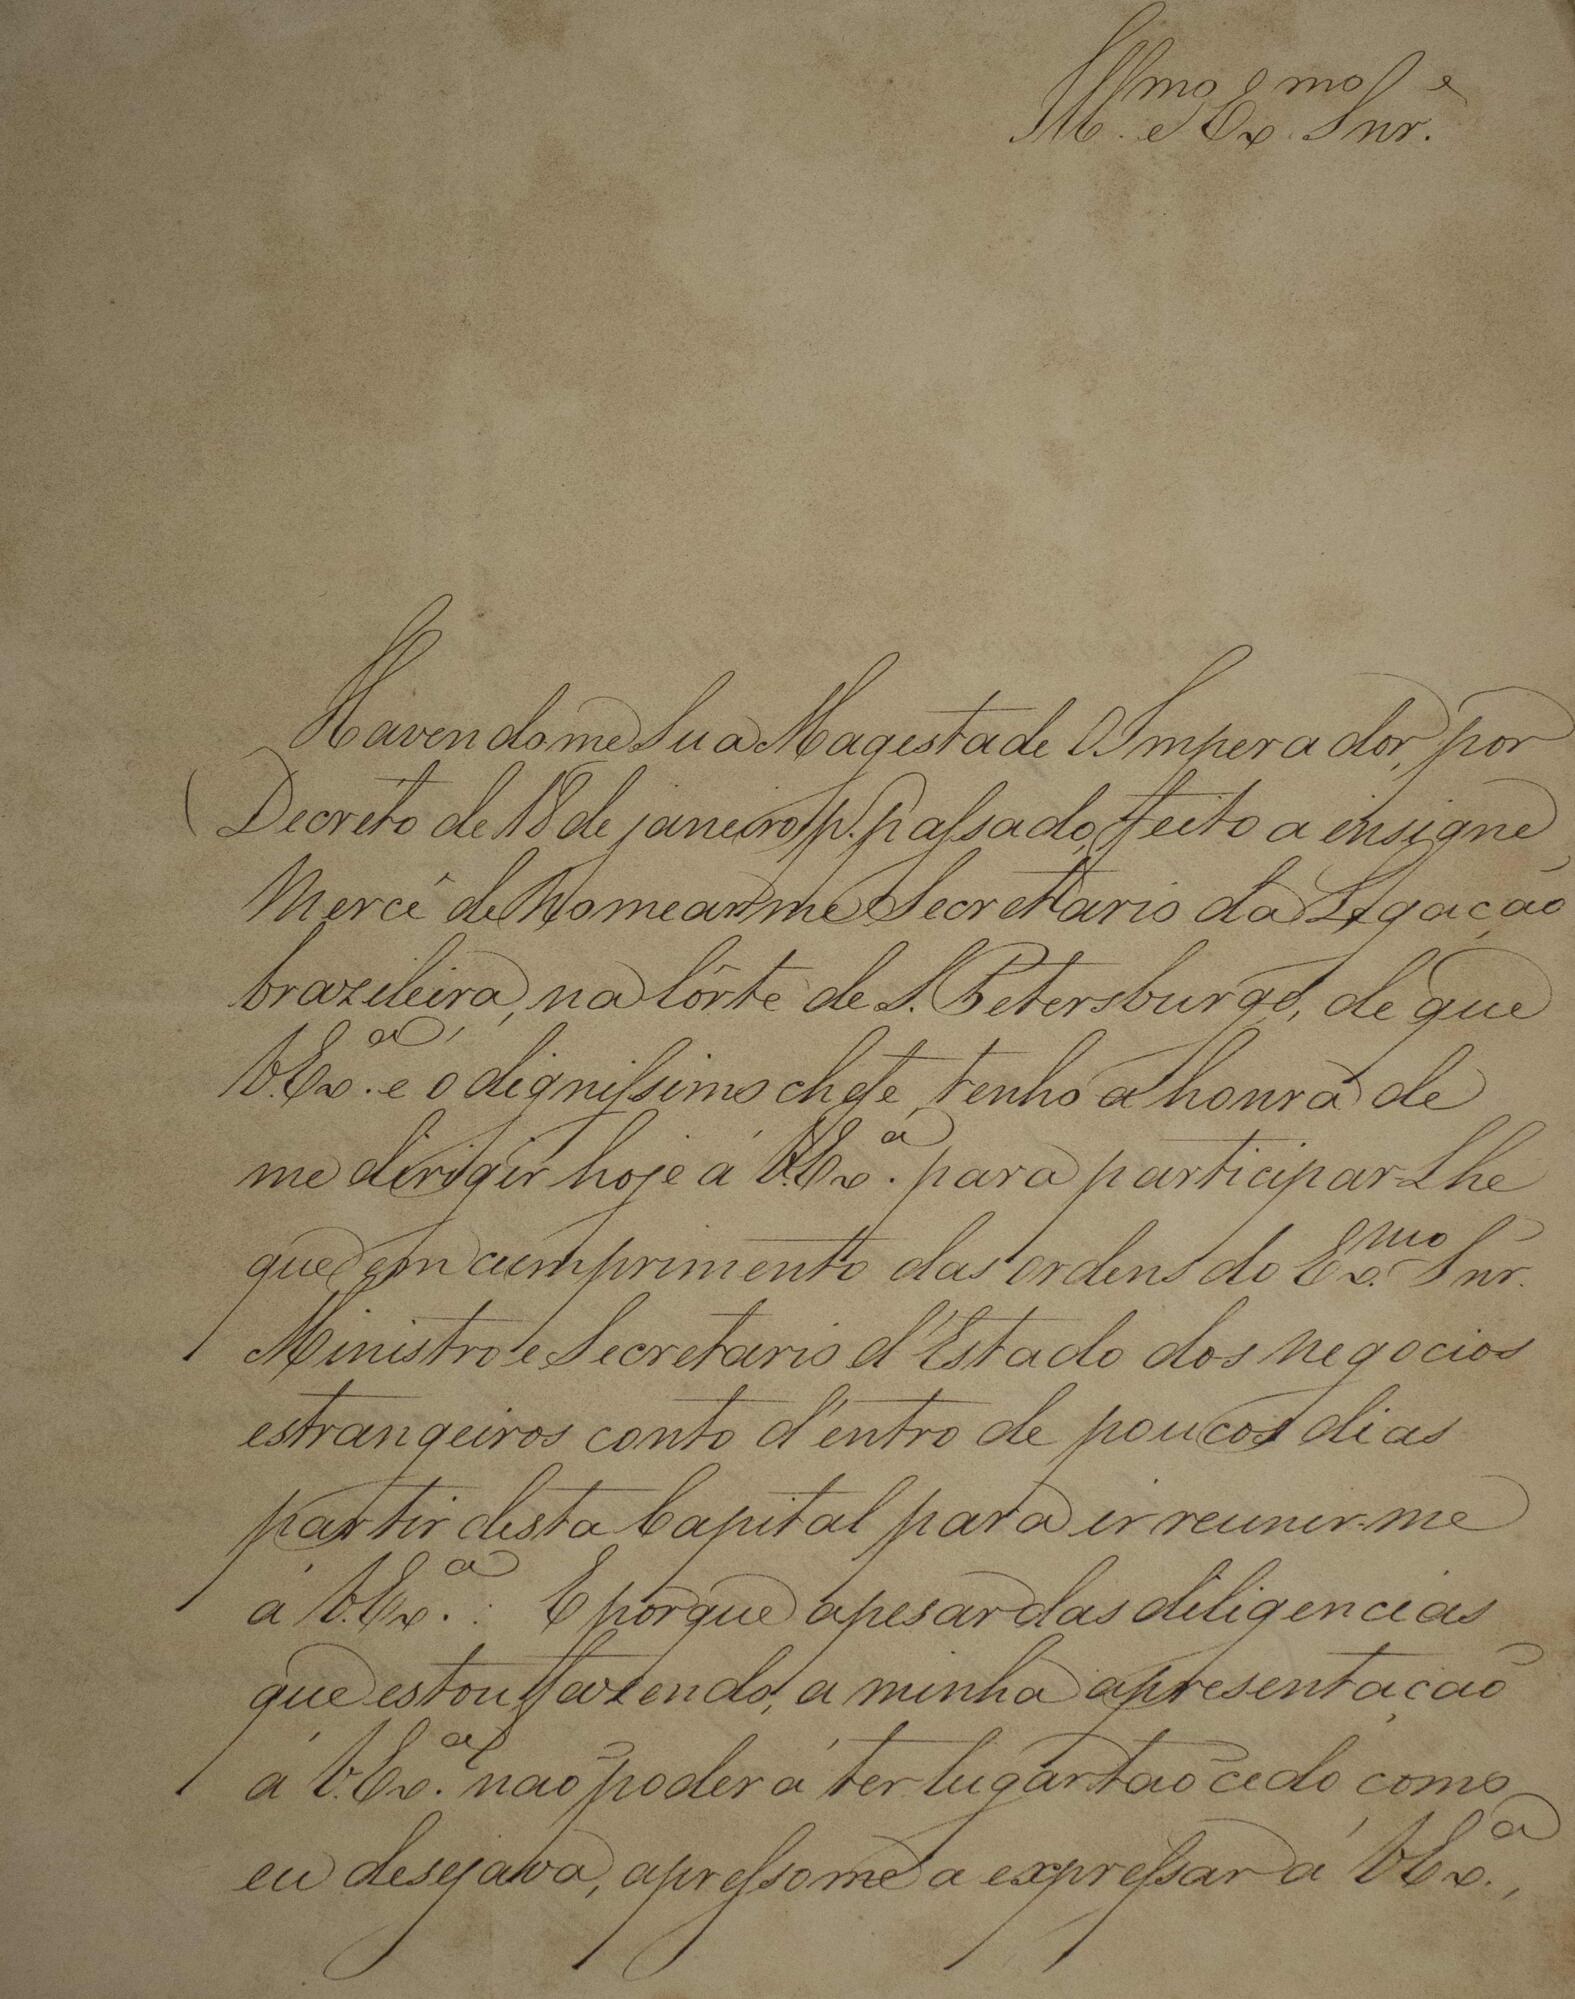 Ill.mo e Ex.mo Snr.
Havendome Sua Magestade O Imperador, por
Decreto de 18 de janeiro p. passado, feito a insigne
Mercê de Nomear-me Secretario da Legação
brazileira, na Côrte de S. Petersburgo, de que
V. Ex.a e o dignissimo chefe, tenho a honra de
me dirigir hoje á V. Ex.a para participar-Lhe
que em cumprimento das ordens do Ex.mo Snr.
Ministro e Secretario d'Estado dos Negocios
estrangeiros conto d'entro de poucos dias
partir desta Capital para ir reunir-me
á V. Ex.a: E porque apesar das diligencias
que estou fazendo, a minha apresentação
á V. Ex.a não poderá ter lugar tão cedo como
eu desejava, apressome a expressar á V. Ex.a,